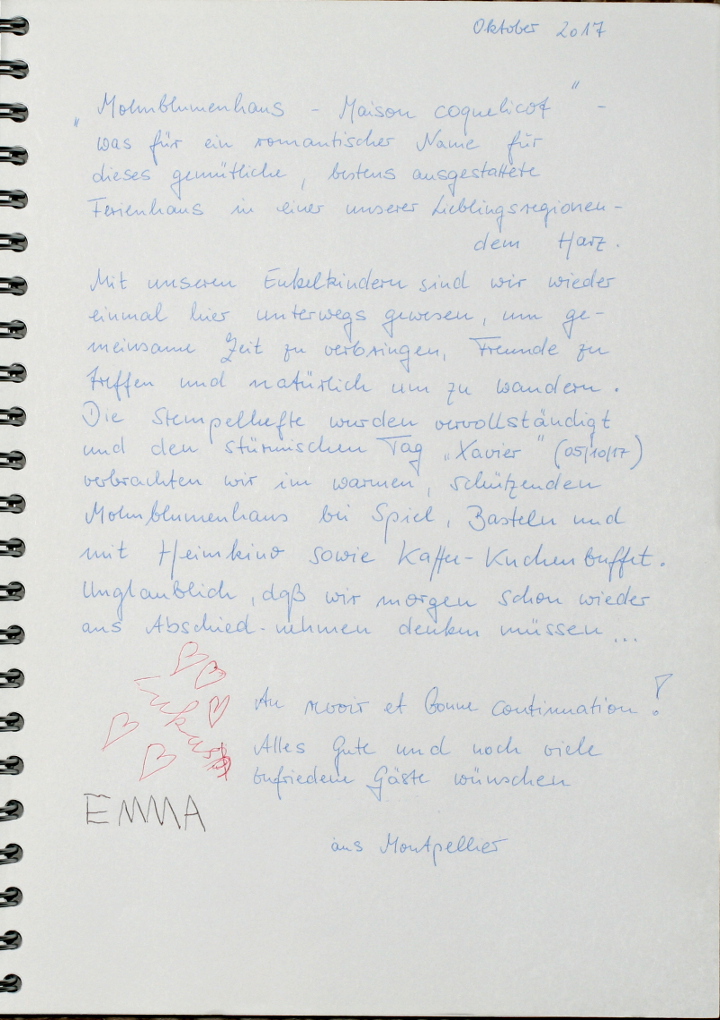 Oktober 2017
„Mohnblumenhaus - Maison coquelicot" -
was für ein romantischer Name für
dieses gemütliche, bestens ausgestattete
Ferienhaus in einer unserer Lieblingsregionen -
dem Harz.
Mit unseren Enkelkindern sind wir wieder
einmal hier unterwegs gewesen, um ge-
meinsame Zeit zu verbringen, Freunde zu
treffen und natürlich um zu wandern.
Die Stempelhefte wurden vervollständigt
und den stürmischen Tag „Xavier" (05/10/17)
verbrachten wir im warmen, schützenden
Mohnblumenhaus bei Spiel, Basteln und
mit Heimkino sowie Kaffee-Kuchenbuffet.
Unglaublich, daß wir morgen schon wieder
ans Abschied-nehmen denken müssen...
Lukas
Au revoir et bonne continuation!
Alles Gute und noch viele
zufriedene Gäste wünschen
EMMA
aus Montpellier